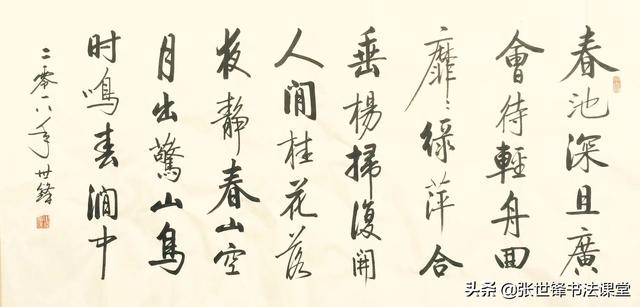 春池深且廣
會待輕舟回
靡〻綠萍合
垂楊掃復開
人閒桂花落
夜靜春山空
月出驚山鳥
时鳴春澗中
二零一八年 世鋒
头条 @张世锋书法课堂